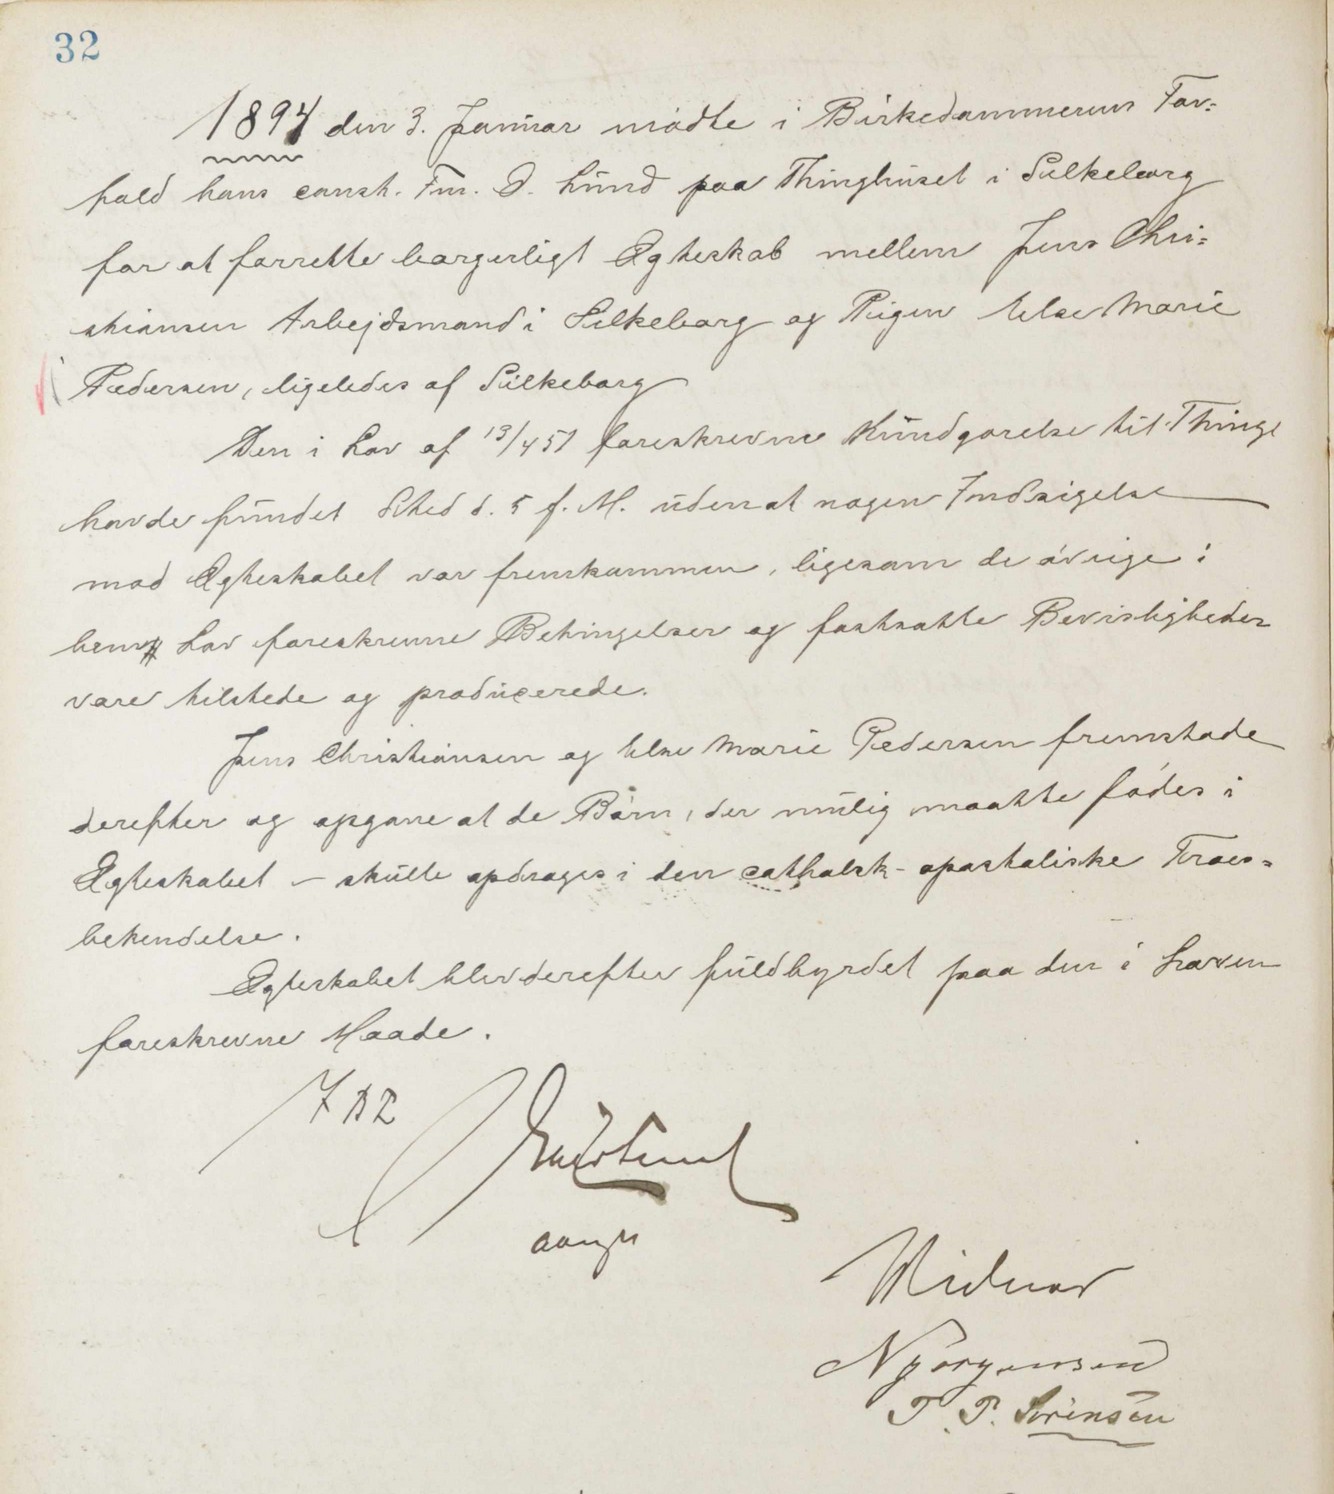 32
1894 den 3. Januar mødte i Birkedommerens For-
fald hans const. Fm. D. Lund paa Thinghuset i Silkeborg
for at forrette borgerligt Ægteskab mellem Jens Chri-
stiansen Arbejdsmand i Silkeborg og Pigen Else Marie
Pedersen, ligeledes af Silkeborg
Den i Lov af 13/4 51 foreskrevne Kundgørelse til Thinge
havde fundet Sted d. 5 f. M. uden at nogen Indsigelse
mod Ægteskabet var fremkommen, ligesom de øvrige i
bem Lov foreskrevne Betingelser og fastsatte Bevisligheder
vare tilstede og producerede.
Jens Christiansen og Else Marie Pedersen fremstode
derefter og opgave at de Børn, der mulig maatte fødes i
Ægteskabet – skulle opdrages i den catholsk-apostoliske Troes-
bekendelse.
Ægteskabet blev derefter fuldbyrdet paa den i Loven
foreskrevne Maade.
Vidner
N Jørgensen
P. Sørensen